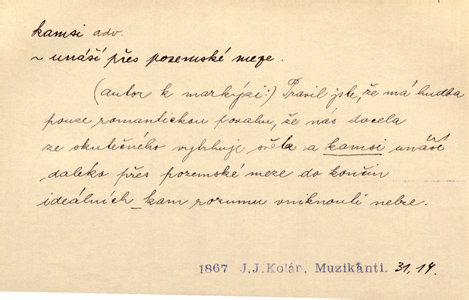 kamsi adv.
~ unáší přes pozemské meze.
(autor k markýzi:) Pravil jste, že má hudba
pouze romantickou povahu, že nás docela
ze skutečného vytrhuje světa a kamsi unáší
daleko přes pozemské meze do končin
ideálních kam rozumu vniknouti nelze.
1867 J.J.Kolár, Muzikánti. 31, 14.